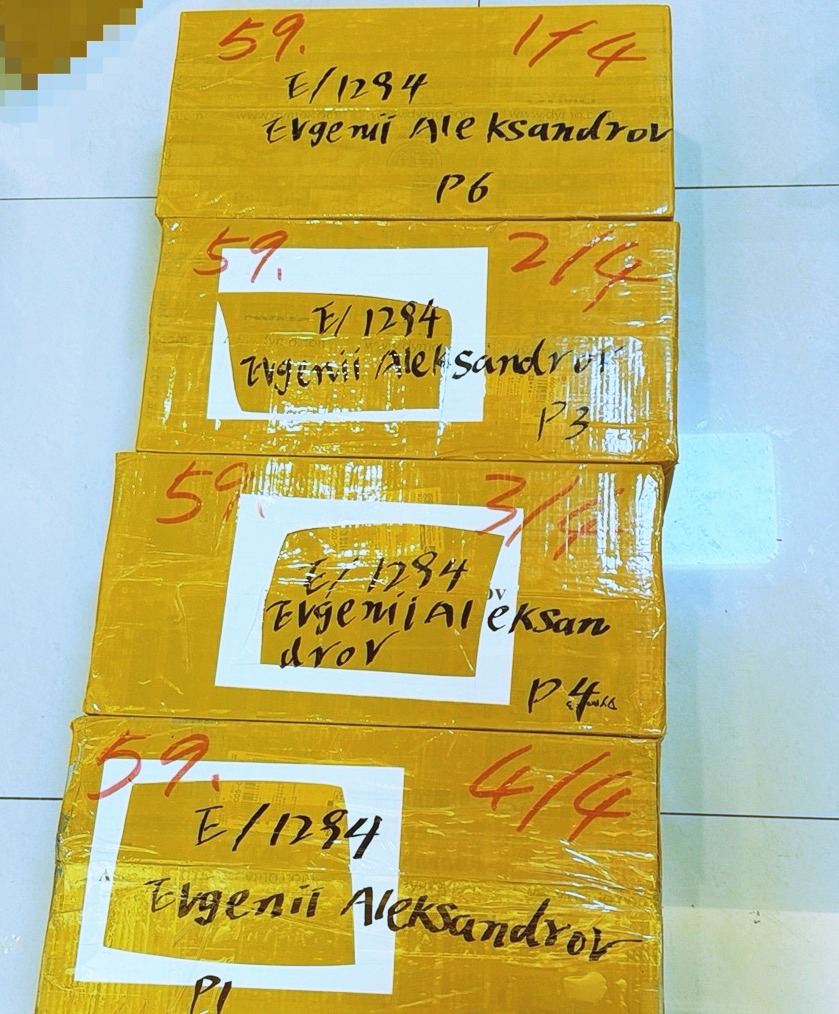 59. 1/4
E/1294
Evgenii Aleksandrov
P6
59. 2/4
E/1294
Evgenii Aleksandrov
P3
59. 3/4
E/1294
Evgenii Aleksan
drov
P4
59. 4/4
E/1294
Evgenii Aleksandrov
P1